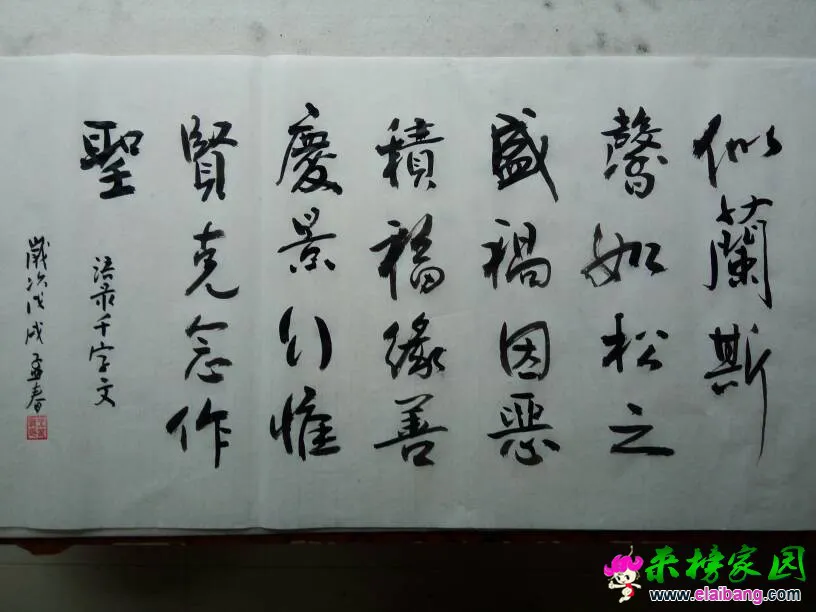 似蘭斯
馨如松之
盛禍因惡
積福緣善
慶景行惟
賢克念作
聖
语录千字文
歲次戊戌孟春
来榜家园
www.elaibang.com